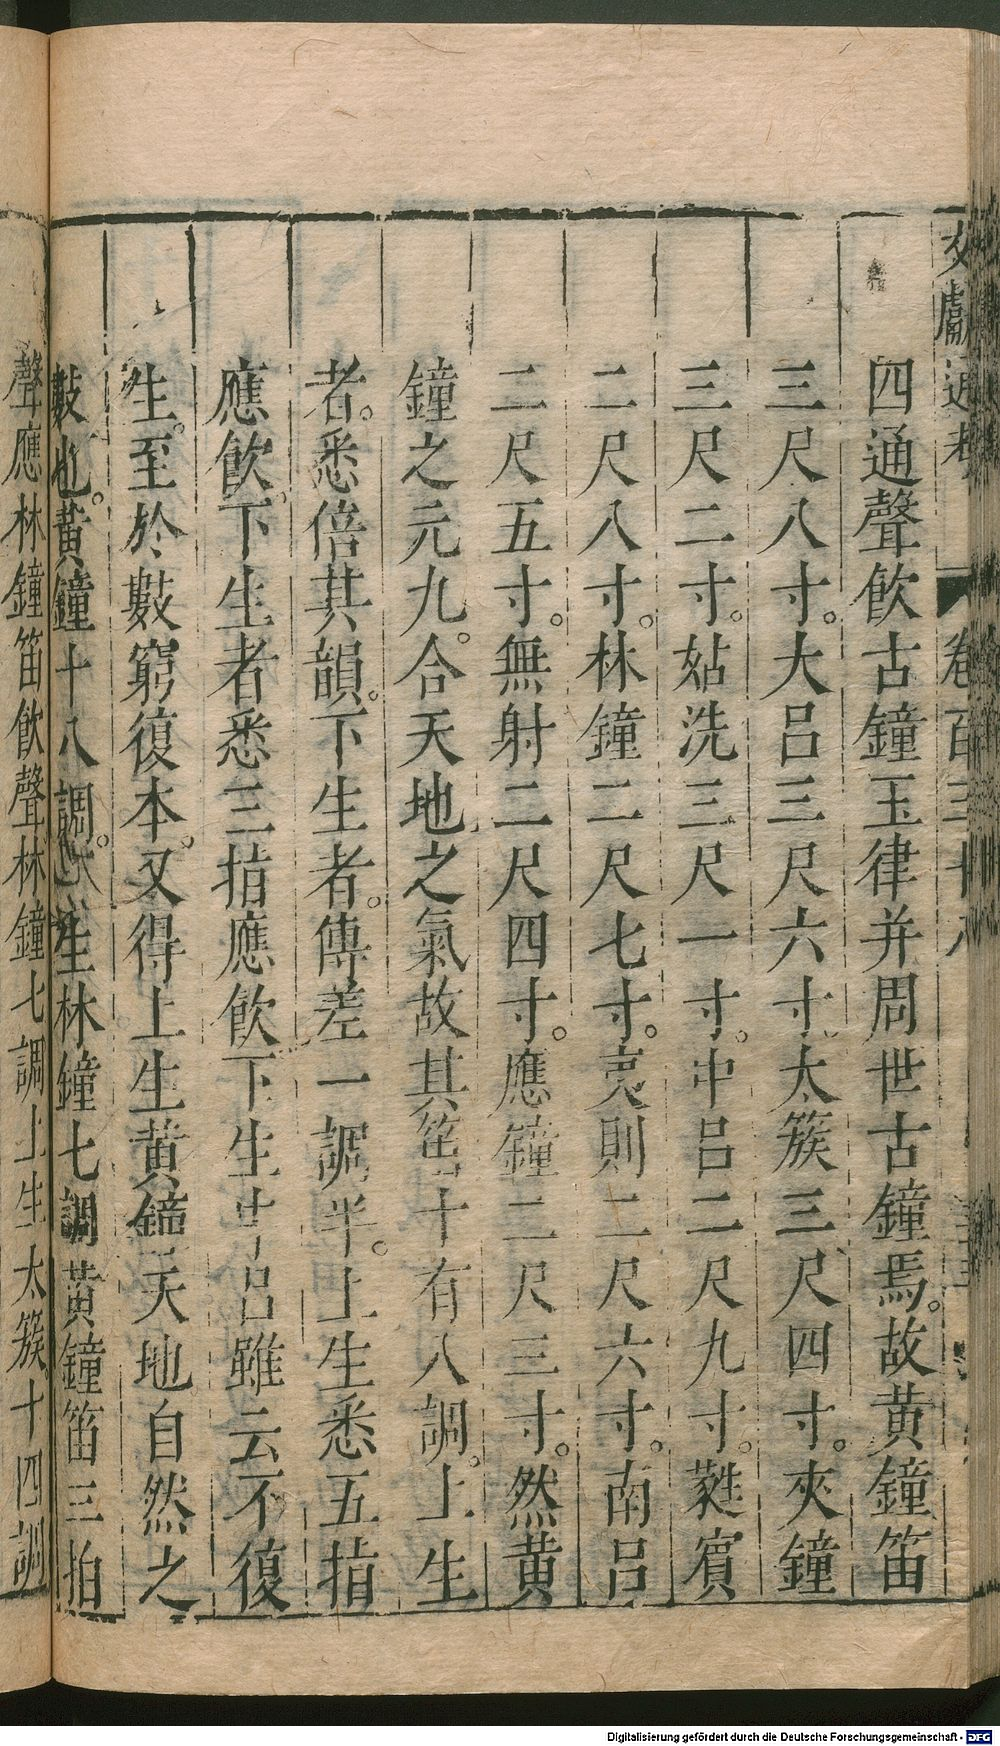 文獻通考 卷百三十八
四通聲飲古鐘玉律并周世古鐘焉。故黄鐘笛
三尺八寸。大呂三尺六寸。太簇三尺四寸。夾鐘
三尺二寸。姑洗三尺一寸。中呂二尺九寸。蕤賓
二尺八寸。林鐘二尺七寸。夷則二尺六寸。南呂
二尺五寸。無射二尺四寸。應鐘二尺三寸。然黄
鐘之元九。合天地之氣故其笛十有八調。上生
者。悉倍其韻。下生者。傳差一調半。上生悉五指
應飲。下生者悉三指應飲下生中呂雖云不復
生。至於數窮復本。又得上生黄鐘天地自然之
數也。黄鐘十八調。下生林鐘七調黄鐘笛三拍
聲應林鐘笛飲聲林鐘七調上生太簇。十四調
Digitalisierung gefördert durch die Deutsche Forschungsgemeinschaft - DFG